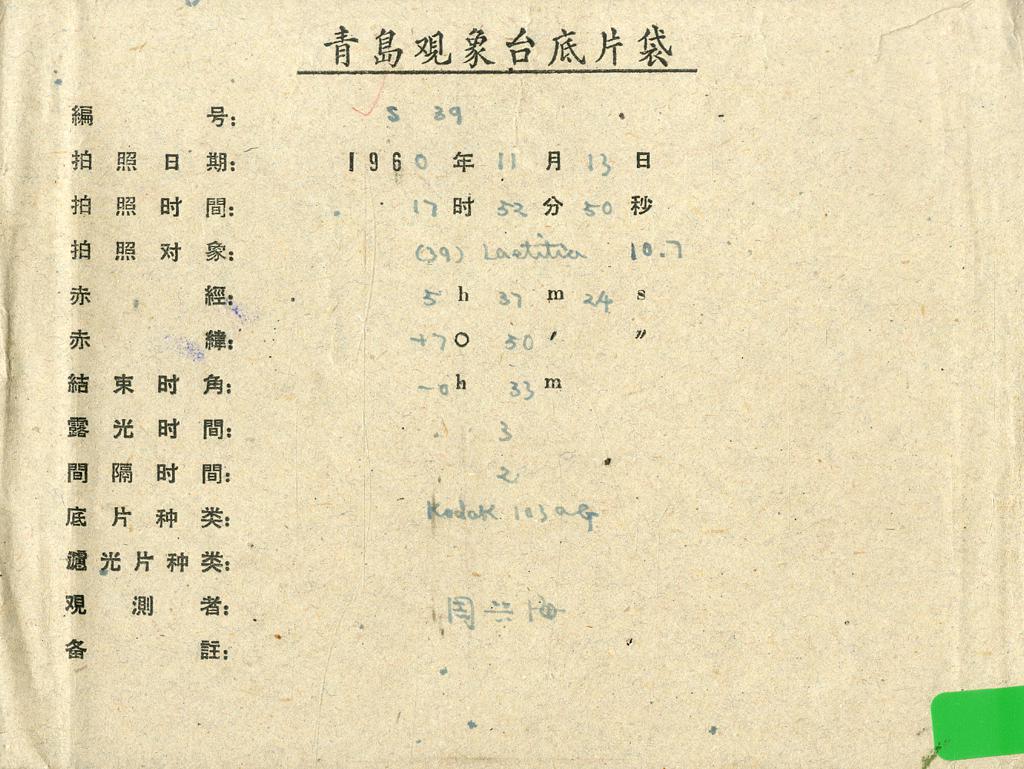 青島观象台底片袋
編号: S 39
拍照日期: 1960年11月13日
拍照时間: 17时52分50秒
拍照对象: (39) Laetitia 10.7
赤經: 5h 37m 24s
赤緯: +7° 50′ ″
結束时角: -0h 33m
露光时間: 3
間隔时間: 2
底片种类: Kodak 103aG
濾光片种类:
观測者: 周兴海
备註: